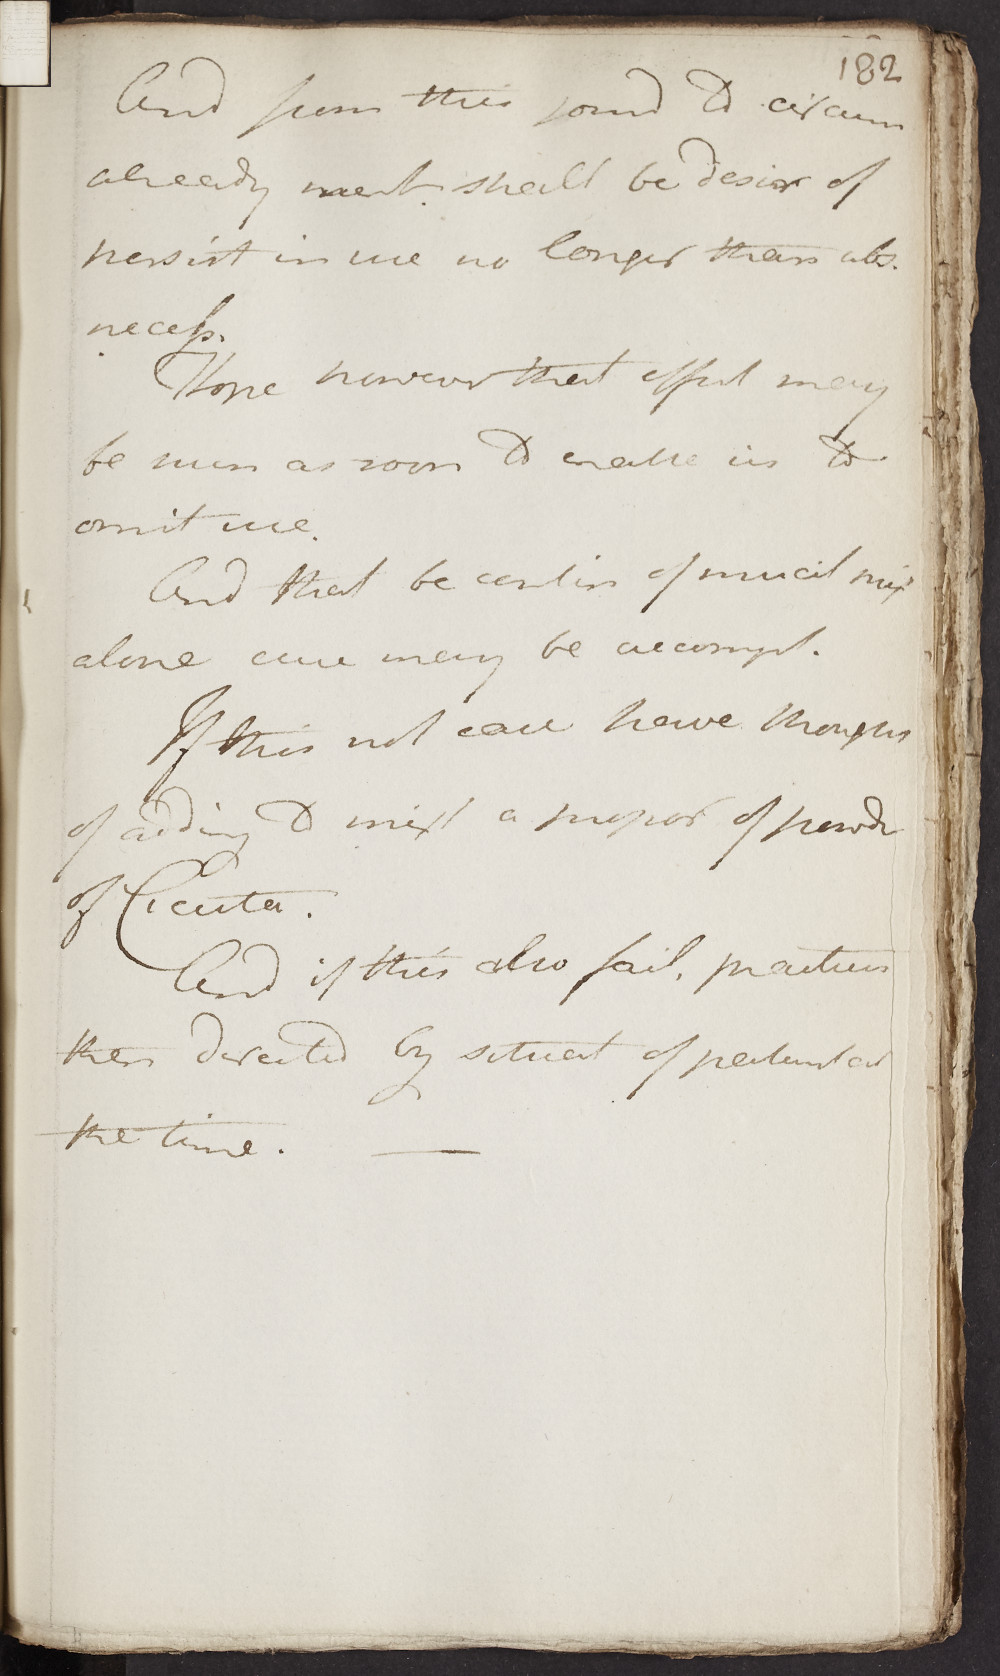 182
And from this joind to circum
already ment. shall be desir of
persist in use no longer than abs.
necess.
Hope however that effect may
be such as soon to enable us to
omit use.
And that be contin of mucil mix
alone cure may be accompl.
If this not case have thoughts
of adding to mixt a propor of powdr
of Cicuta.
And if this also fail, practice
then directed by situat of patient at
the time.